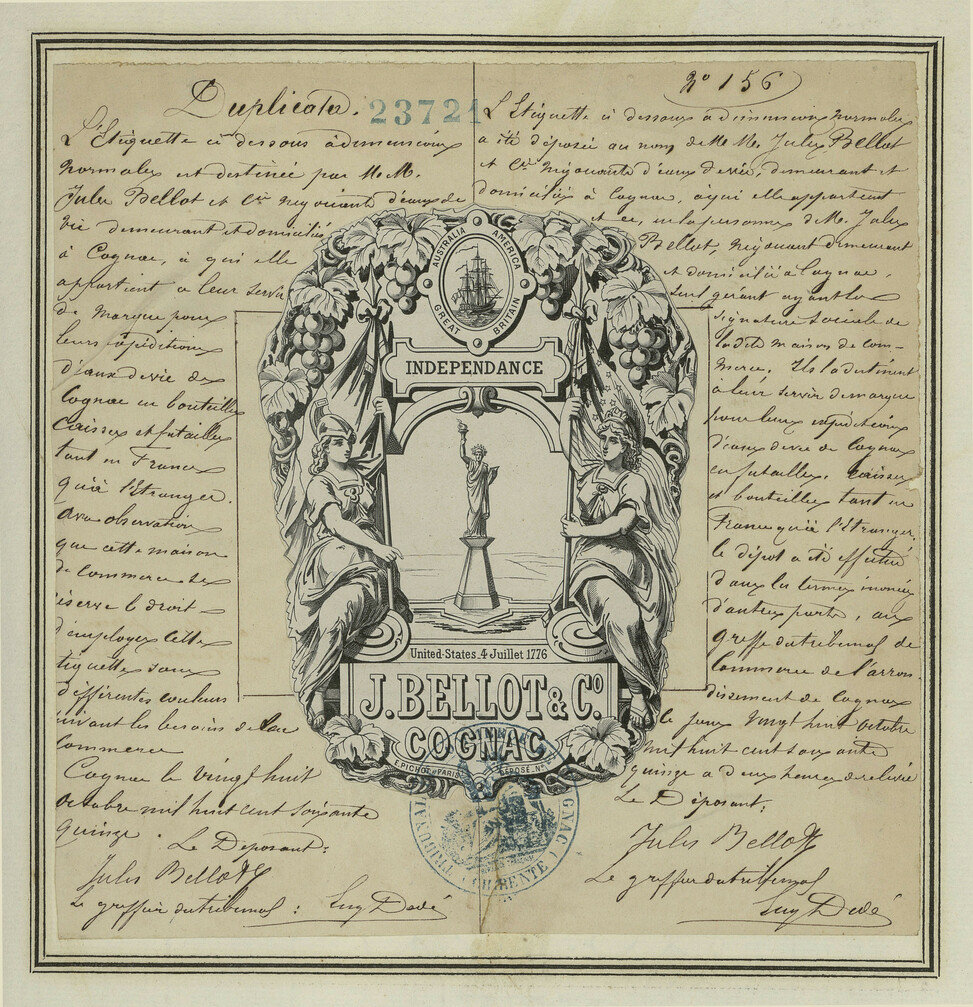 Duplicata.
23721
L'Etiquette ci dessous à dimensions
normales est destinée par M.M.
Jules Bellot et Cie négociants d'eaux de
vie demeurant et domiciliés
à Cognac, à qui elle
appartient a leur servir
de marque pour
leurs expéditions
d'eaux de vie de
Cognac en bouteilles
Caisses et futailles
tant en France
qu'à l'étranger.
avec observation
que cette maison
de commerce se
réserve le droit
d'employer cette
étiquette sous
différentes couleurs
suivant les besoins de
commerce
Cognac le vingt huit
octobre mil huit cent soixante
quinze. Le Déposant:
Jules Bellot
Le greffier du tribunal :
No 156
L'Etiquette ci dessous a dimensions normales
a été déposée au nom de M.M. Jules Bellot
et Cie négociants d'eaux de vie, demeurant et
domiciliés à Cognac, à qui elle appartient
et ce, en la personne de M. Jules
Bellot, négociant demeurant
et domicilié à Cognac,
seul gérant ayant la
signature sociale de
la dite maison de com-
merce. Ils la destinent
à leur servir de marque
pour leurs expéditions
d'eaux de vie de Cognac
en futailles, caisses
et bouteilles tant en
France qu'à l'étranger,
le dépôt a été effectué
dans les termes énoncés
d'autres parts, aux
greffe du tribunal de
Commerce de l'arron
dissement de Cognac
le jour vingt huit octobre
mil huit cent soixante
quinze a deux heures de relevée
Le Déposant:
Jules Bellot
Le greffier du tribunal
AUSTRALIA AMERICA
GREAT BRITAIN
INDEPENDANCE
United-States. 4 Juillet 1776
J. BELLOT & Co.
COGNAC
E. PICHOT à PARIS DÉPOSÉ. No
TRIBUNAL
COGNAC
CHARENTE